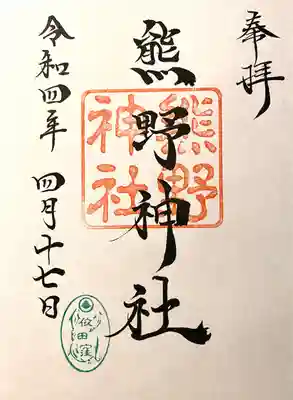 奉拝
熊野神社
熊野
神社
令和四年 四月十七日
牧田窪